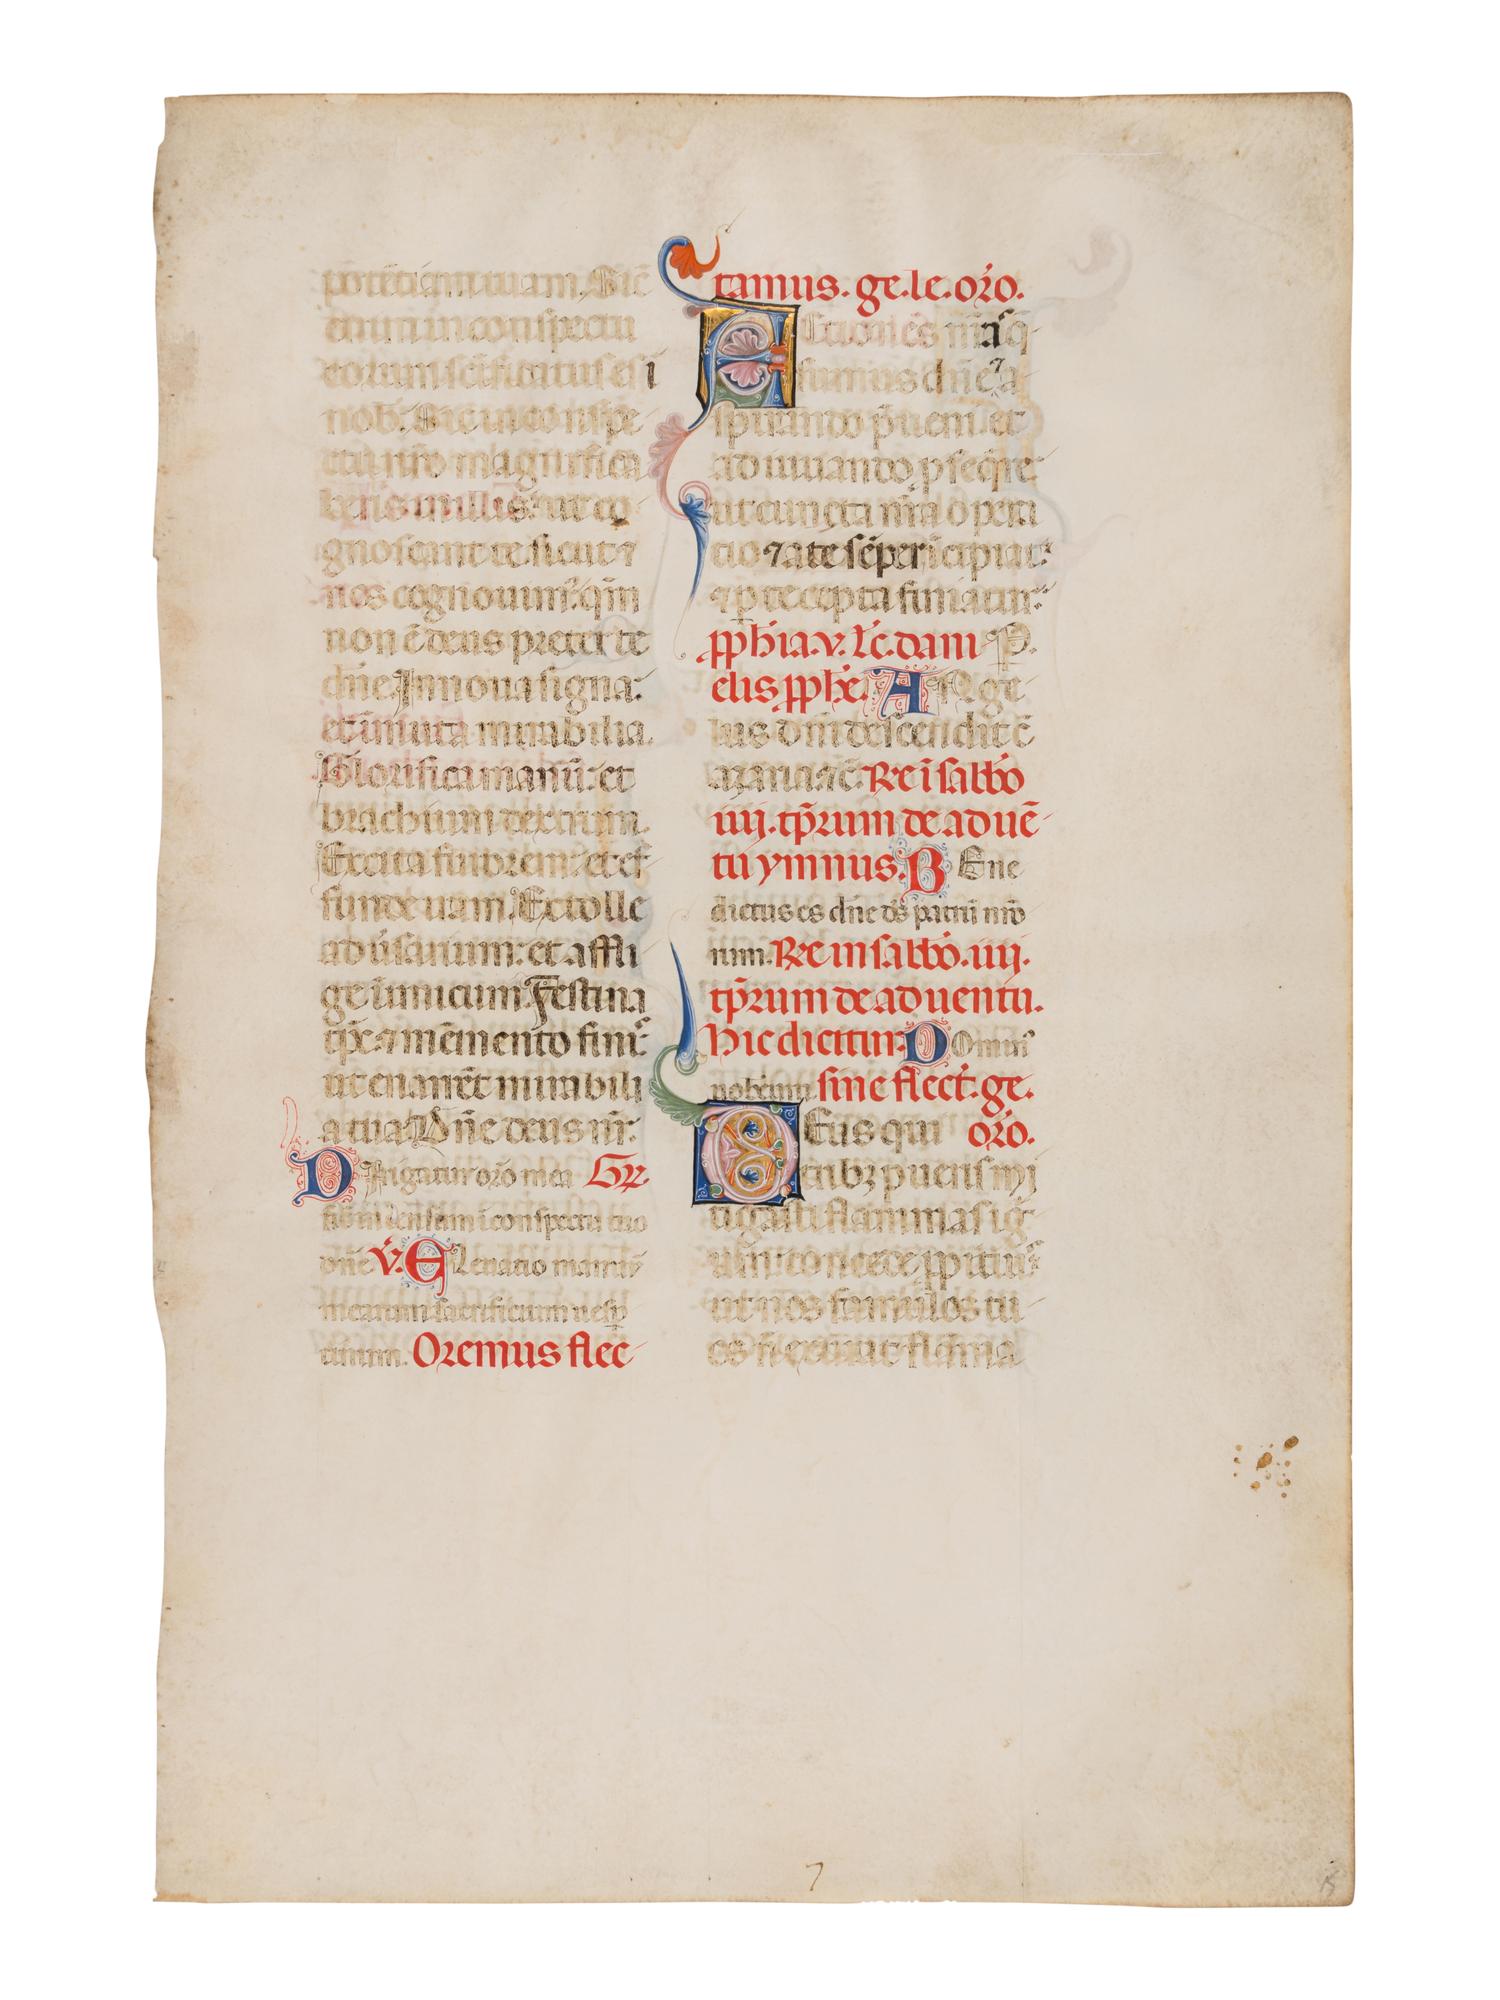 potētiam tuam. Sic̄
enim in conspectu
eorum sc̄ificatus es ī
nob̄. Sic in conspe
ctu nr̄o magnifica
beris in illis: ut co
gnoscant te sicut ⁊
nos cognouim᷒: qm̄
non ē deus preter te
dn̄e. Innoua signa:
et īmuta mirabilia.
Glorifica manū: et
brachium dextrum.
Excita furorem: et ef
funde iram. Extolle
aduersarium: et affli
ge īimicum. Festina
tp̄s: ⁊ mēmento finis:
ut enarrēt mirabili
a tua. Dn̄e deus nr̄.
Dirigatur or̄o mea Gr̄.
sicut incensum ī conspectu tuo
dn̄e v̄. Eleuatio manuū
mearum sacrificium uesp
tinum. Oremus flec
tamus. ge. le. or̄o.
Actiones nr̄as q̄
sumus dn̄e ⁊ a
spirando p̄ueni: et
adiuuando, p̄seq̄re:
ut cuncta nr̄a op̄era
tio ⁊ a te sēper īcipiat:
⁊ p̱ te cepta finiatur.
pph̄ia. v. lc̄. dani P̱.
elis pph̄e. Ange
lus dn̄i descendit c̄
azaria ⁊c̄. R̄e ī sabb̄o
iiij. tp̄rum de aduē
tu ymnus. Bene
dictus es dn̄e ds̄ patrū nr̄o
rum. R̄e in sabb̄o. iiij.
tp̄rum de aduentu.
hic dicitur. Domin᷒
nobcum. sine flect̄. ge.
Deus qui or̄o.
trib᷒ pueris mi
tigasti flammas ig
nium: concede ppitius:
ut nos famulos tu
os n̄ exurat flāma
7